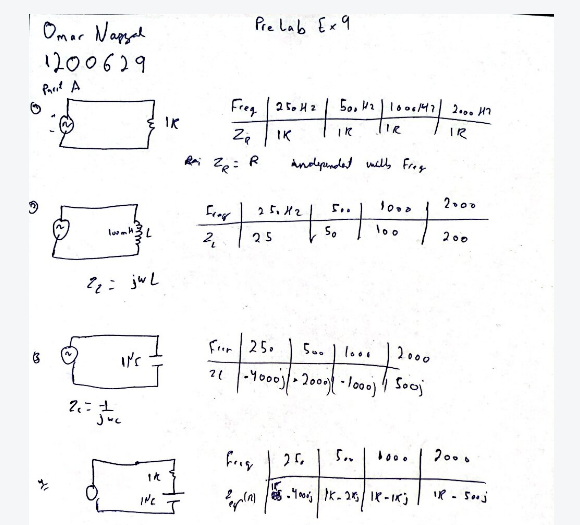 Pre Lab Ex 9
Omar Nazzal
1200629
Part A
1K
Freq 250 Hz 500 Hz 1000 Hz 2000 Hz
Z_R 1K 1K 1K 1K
Z_R = R independent with Freq
100mH L
Freq 250 Hz 500 1000 2000
Z_L 25 50 100 200
Z_L = jwL
Freq 250 500 1000 2000
-4000j -2000j -1000j 500j
Zc = 1/jwc
1K
Freq 250 500 1000 2000
Z_eq(R) 1K -400j 1K-2Kj 1K-1Kj 1K - 500j